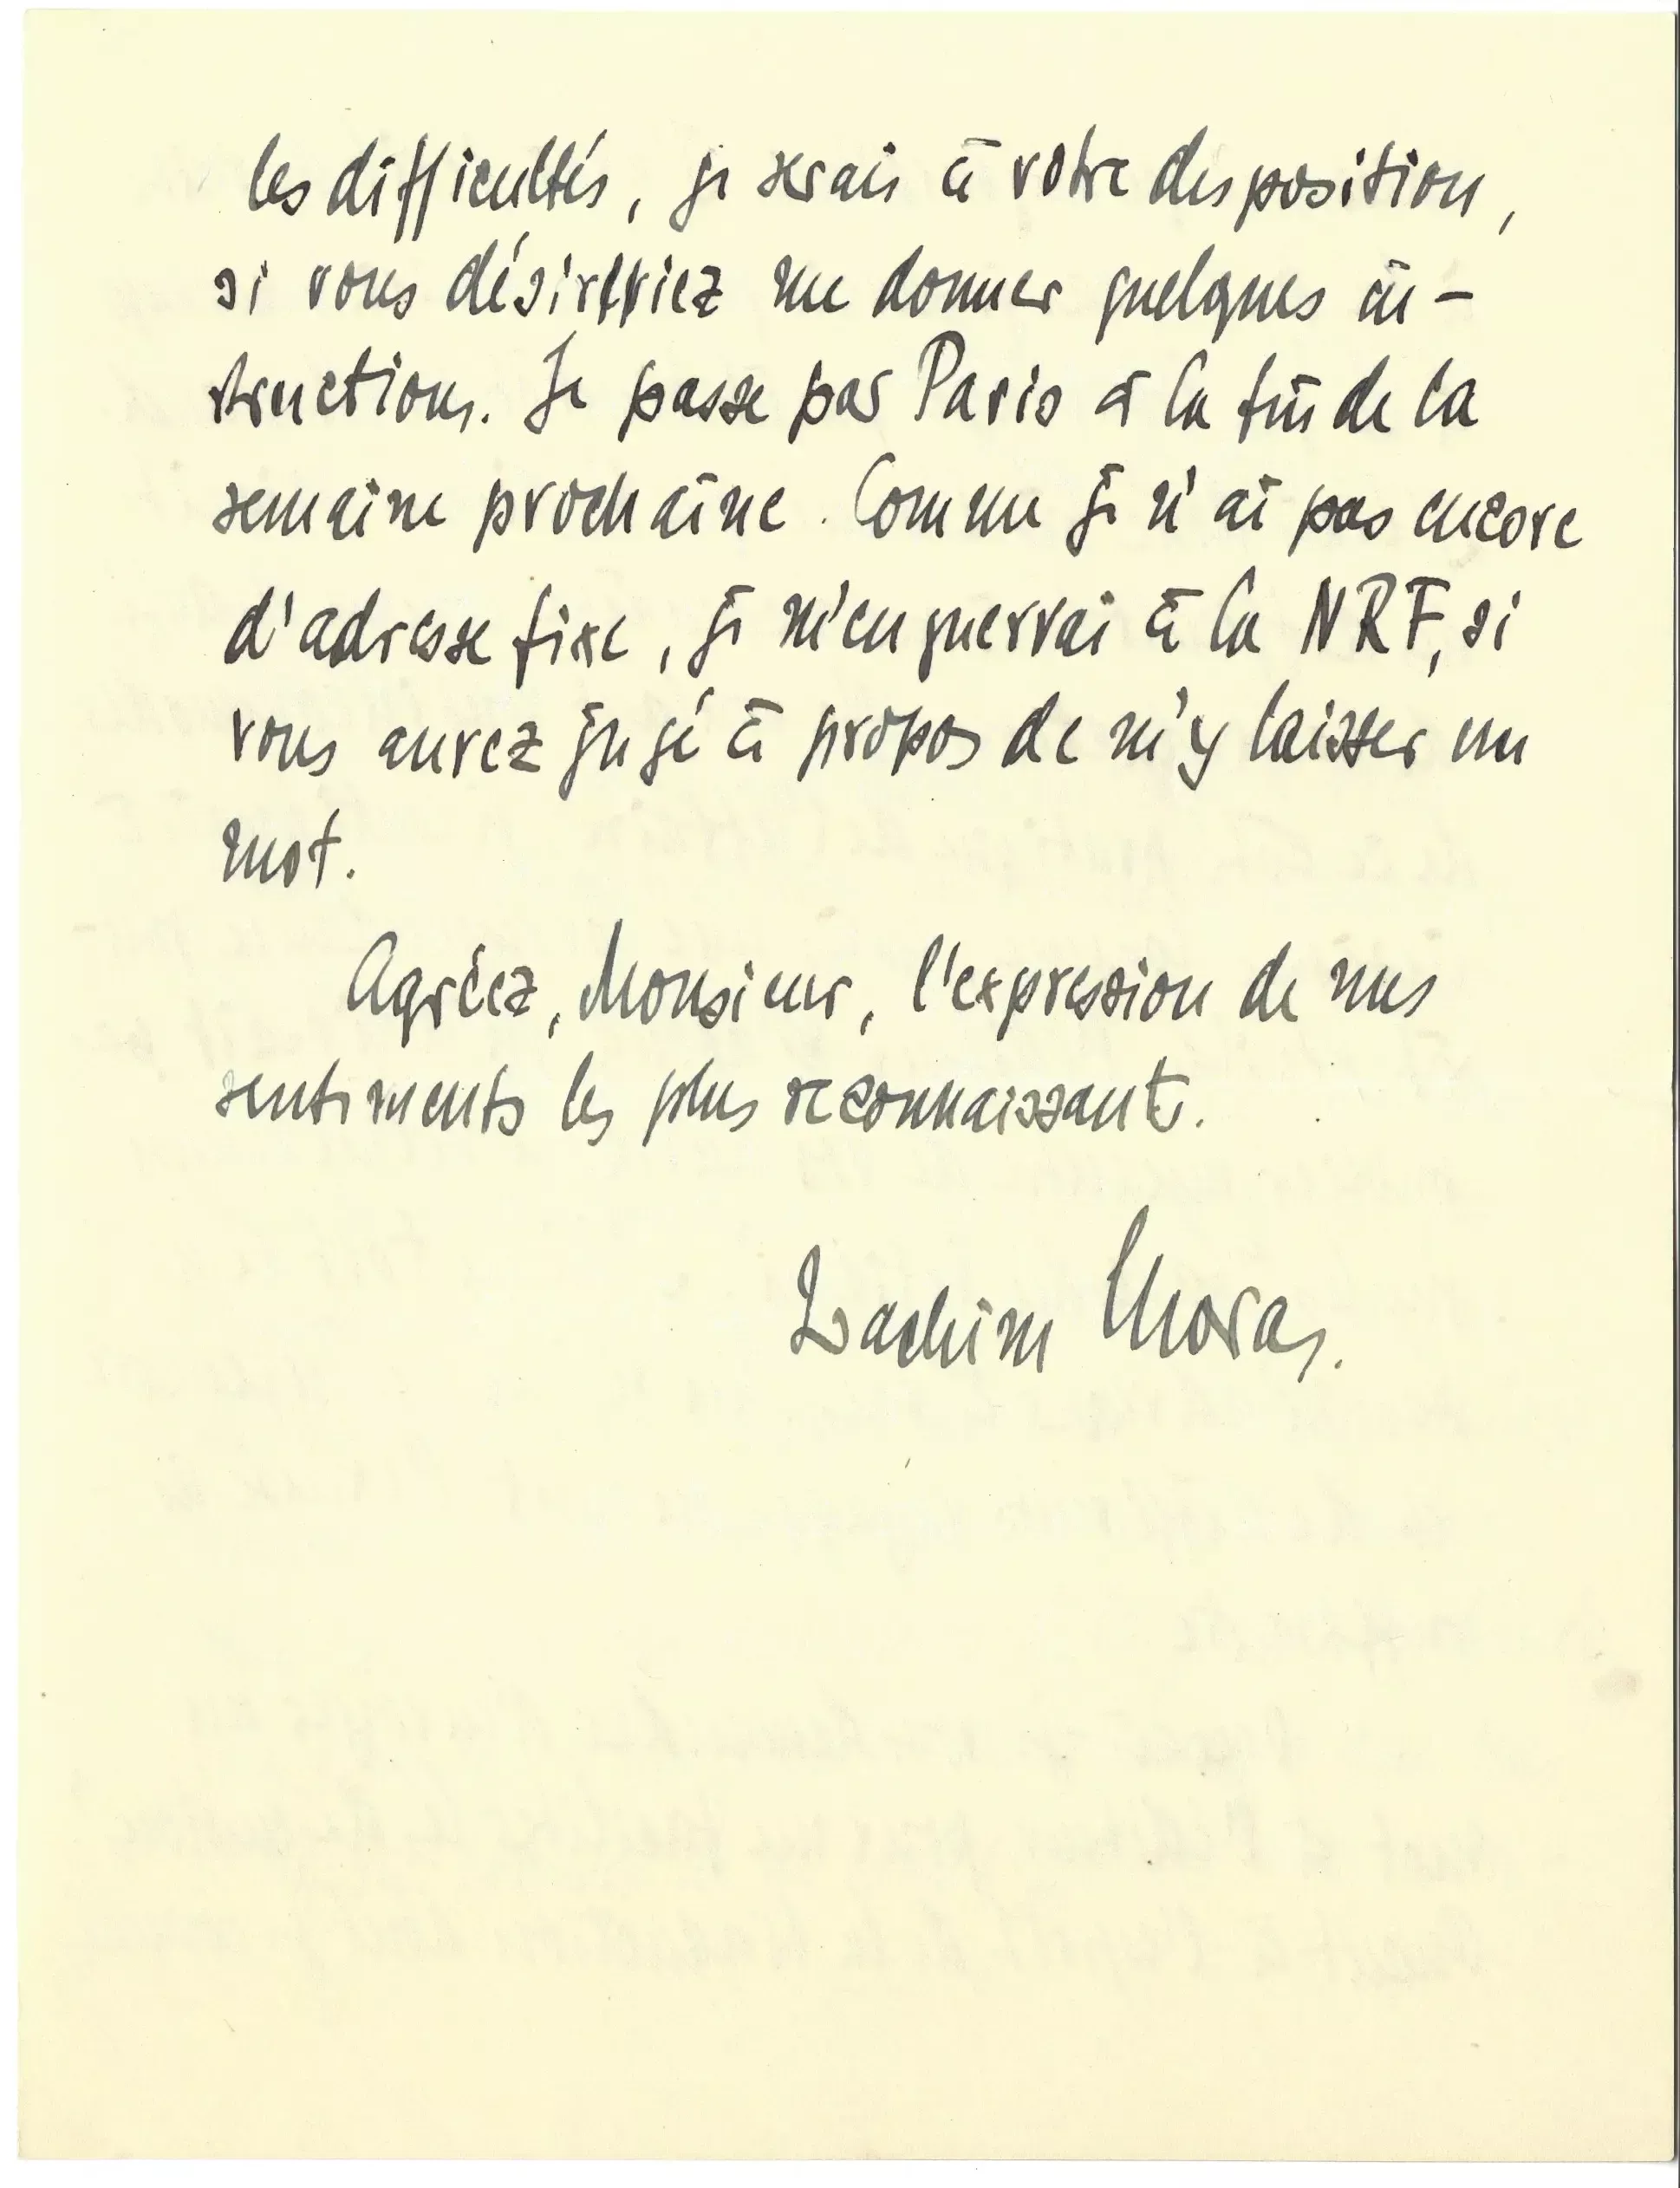 les difficultés, je serais à votre disposition,
si vous désireriez me donner quelques in-
structions. Je passe par Paris à la fin de la
semaine prochaine. Comme je n'ai pas encore
d'adresse fixe, je m'enquerrai à la NRF, si
vous aurez jugé à propos de m'y laisser un
mot.
Agréez, Monsieur, l'expression de mes
sentiments les plus reconnaissants.
Joachim Moras.